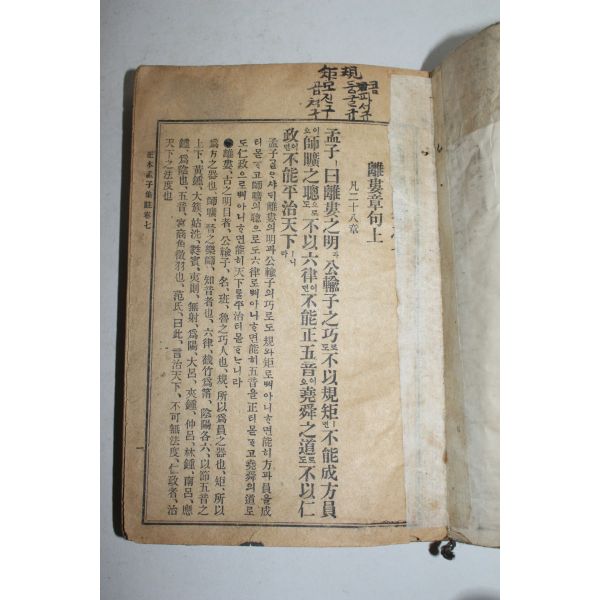 離婁章句上
凡二十八章
孟子ㅣ曰離婁之明과公輸子之巧로도不以規矩면不能成方員
이오師曠之聰으로도不以六律이면不能正五音이오堯舜之道로도不以仁
政이면不能平治天下ㅣ니라
孟子ㅣ골ᄋᆞ샤ᄃᆡ離婁의明과公輸子의巧로도規와矩로ᄡᅥ아니ᄒᆞ면能히方과員을成
티몯ᄒᆞ고師曠의聰으로도六律로ᄡᅥ아니ᄒᆞ면能히五音을正티몯ᄒᆞ고堯舜의道로
도仁政으로ᄡᅥ아니ᄒᆞ면能히天下를平治티몯ᄒᆞᄂᆞ니라
●離婁、古之明目者、公輸子、名、班、魯之巧人也、規、所以爲員之器也、矩、所以
爲方之器也、師曠、晉之樂師、知音者也、六律、截竹爲筩、陰陽各六、以節五音之
上下、黃鍾、大簇、姑洗、蕤賓、夷則、無射、爲陽、大呂、夾鍾、仲呂、林鍾、南呂、應
鍾、爲陰也、五音、宮商角徵羽也、范氏、曰此、言治天下、不可無法度、仁政者、治
天下之法度也
正本孟子集註卷七
一
規
둥글규
矩
모진구